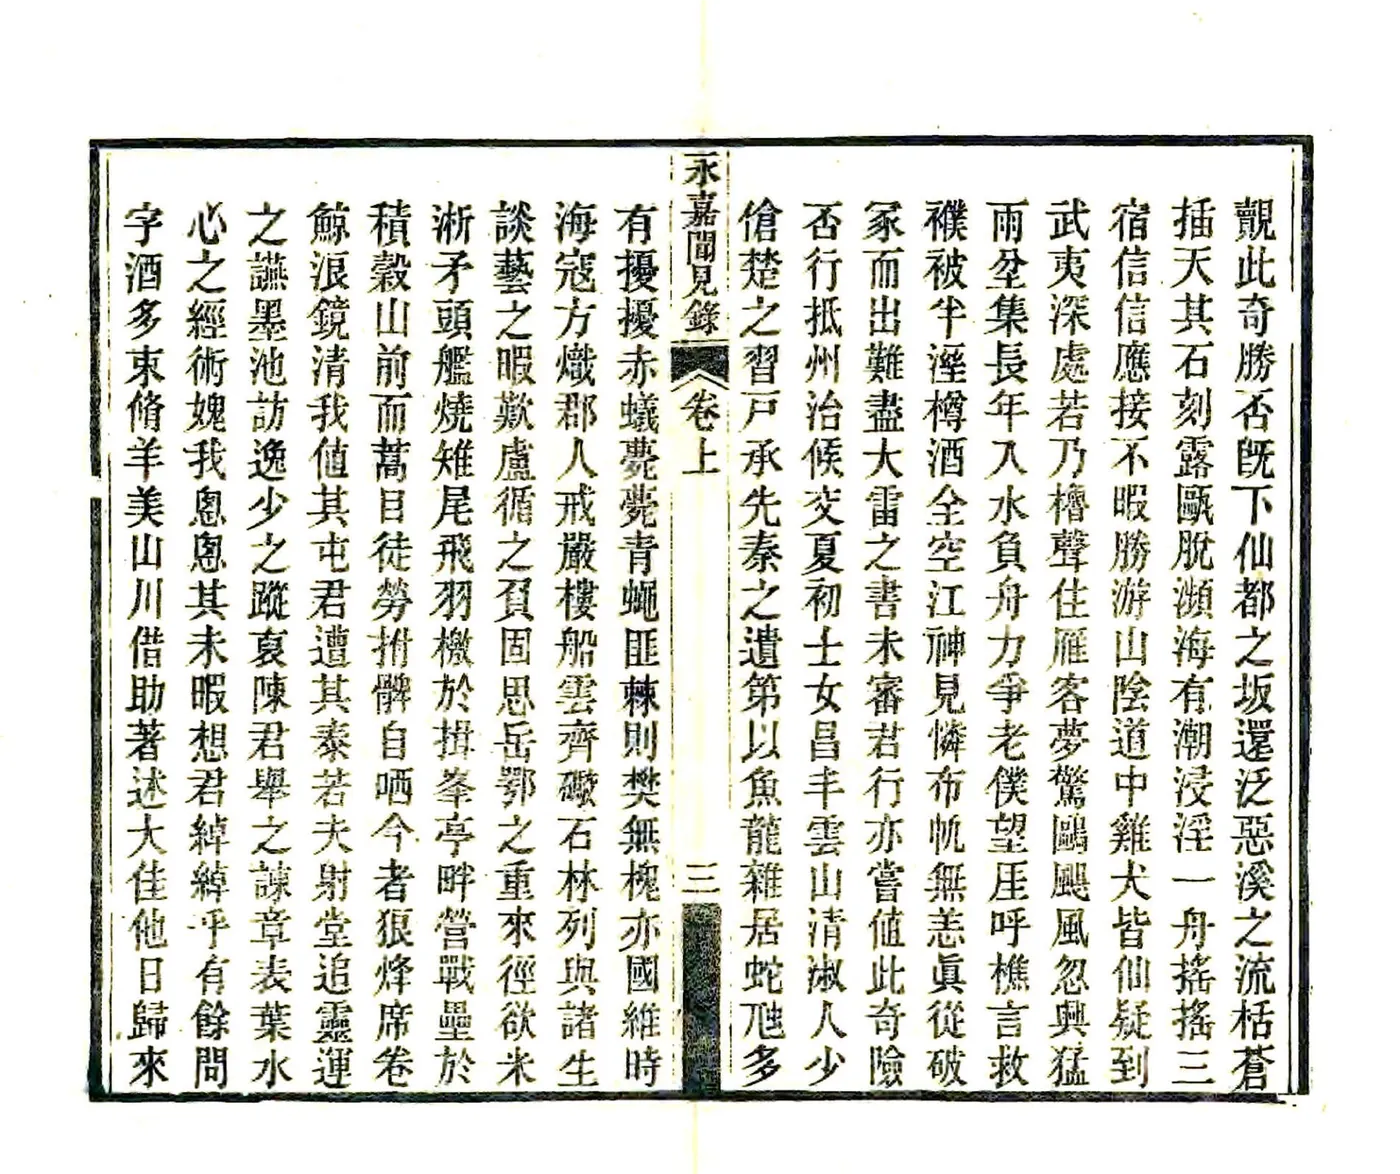 覿此奇勝否旣下仙都之坂還泛惡溪之流栝蒼
插天其石刻露甌脫瀕海有潮浸淫一舟搖搖三
宿信信應接不暇勝游山陰道中雞犬皆仙疑到
武夷深處若乃櫓聲住雁客夢驚鷗颶風忽興猛
雨坌集長年入水負舟力爭老僕望厓呼樵言救
襆被半溼樽酒全空江神見憐布帆無恙眞從破
冢而出難盡大雷之書未審君行亦嘗値此奇險
否行抵州治候交夏初士女昌丰雲山清淑人少
傖楚之習戸承先秦之遺第以魚龍雜居蛇虺多
永嘉聞見錄
卷上
三
有擾擾赤蟻薨薨青蠅匪棘則樊無槐亦國維時
海寇方熾郡人戒嚴樓船雲齊礮石林列與諸生
談藝之暇歎盧循之負固思岳鄂之重來徑欲米
淅矛頭艦燒雉尾飛羽檄於揖峯亭畔營戰壘於
積穀山前而蒿目徒勞拊髀自哂今者狼烽席卷
鯨浪鏡清我値其屯君遭其泰若夫射堂追靈運
之讌墨池訪逸少之蹤裒陳君舉之諫章表葉水
心之經術媿我悤悤其未暇想君綽綽乎有餘問
字酒多束脩羊美山川借助著述大佳他日歸來